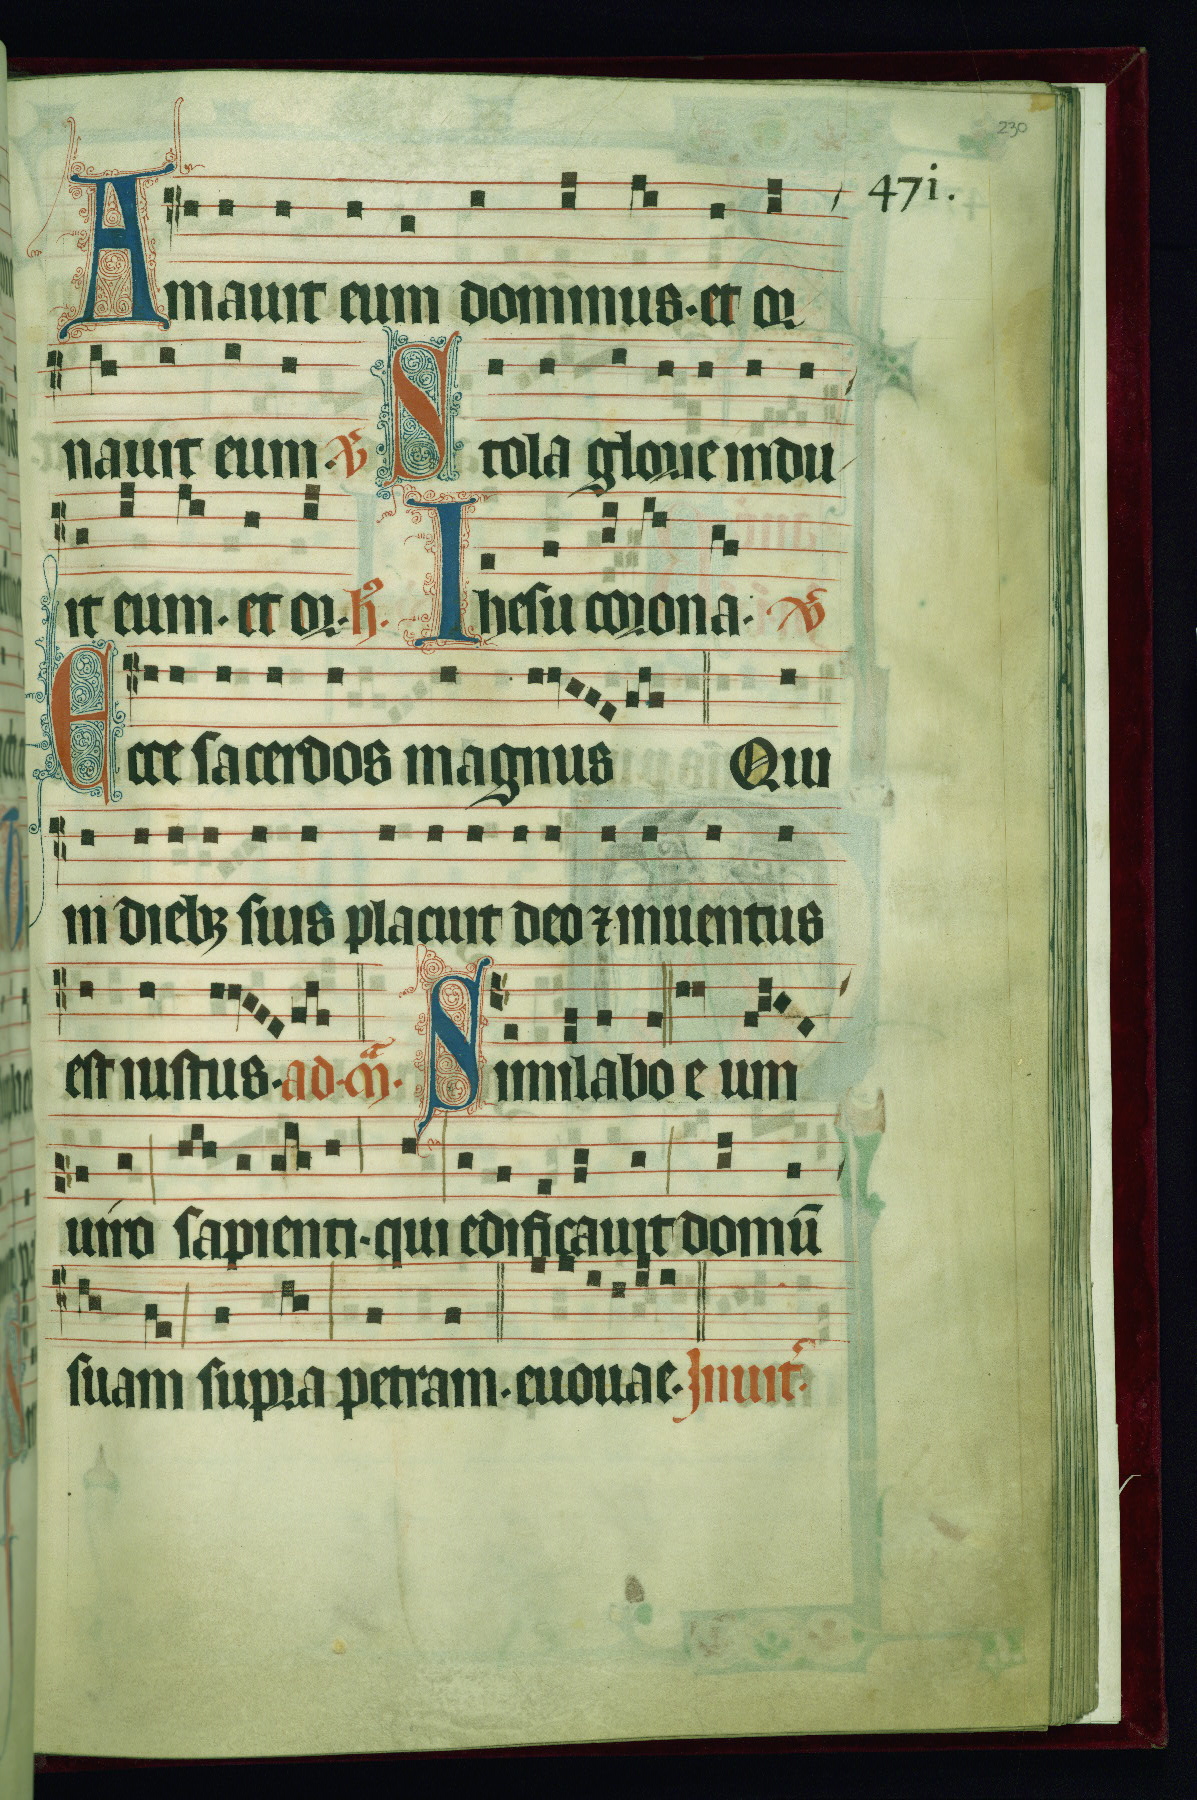 230
47i.
Amauit eum dominus · et or
nauit eum · V̄ Stola glorie indu
it eum · et or · h̄ · Ihesu corona · V̄
Ecce sacerdos magnus Qui
in diebꝫ suis placuit deo ⁊ inuentus
est iustus · ad · m̄ · Similabo e um
uiro sapienti · qui edificauit domū
suam supra petram · euouae · Inuit̄ ·